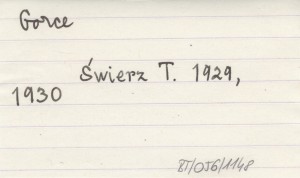 Gorce
Świerz T. 1929,
1930
BT/OJG/1148